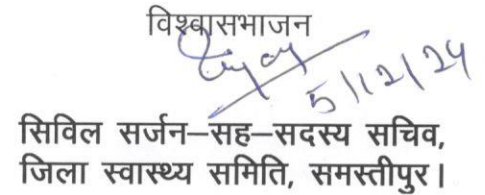 विश्वासभाजन
5/12/24
सिविल सर्जन–सह–सदस्य सचिव,
जिला स्वास्थ्य समिति, समस्तीपुर।